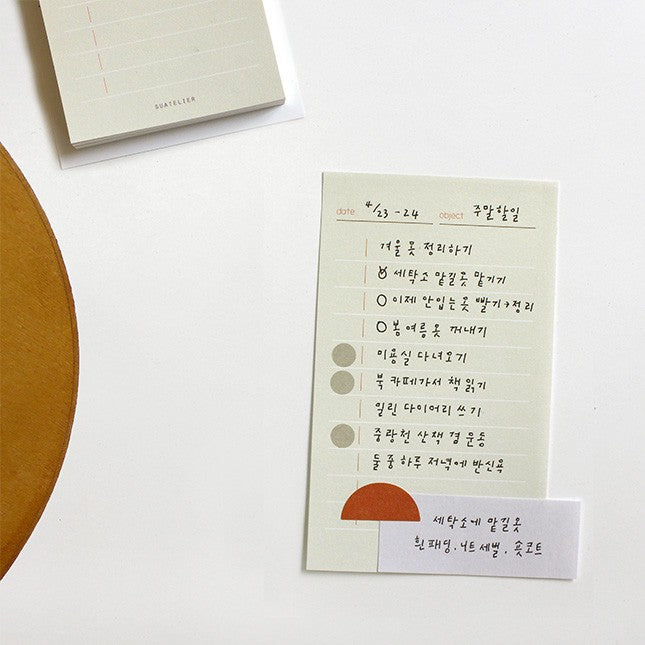 SUATELIER
date 4/23 - 24 object 주말할일
겨울옷 정리하기
세탁소 맡길옷 맡기기
이제 안입는옷 빨기→정리
봄 여름옷 꺼내기
미용실 다녀오기
북카페가서 책 읽기
밀린 다이어리 쓰기
중랑천 산책 겸 운동
둘중하루 저녁에 반신욕
세탁소에 맡길옷
흰패딩, 니트세벌, 숏코트